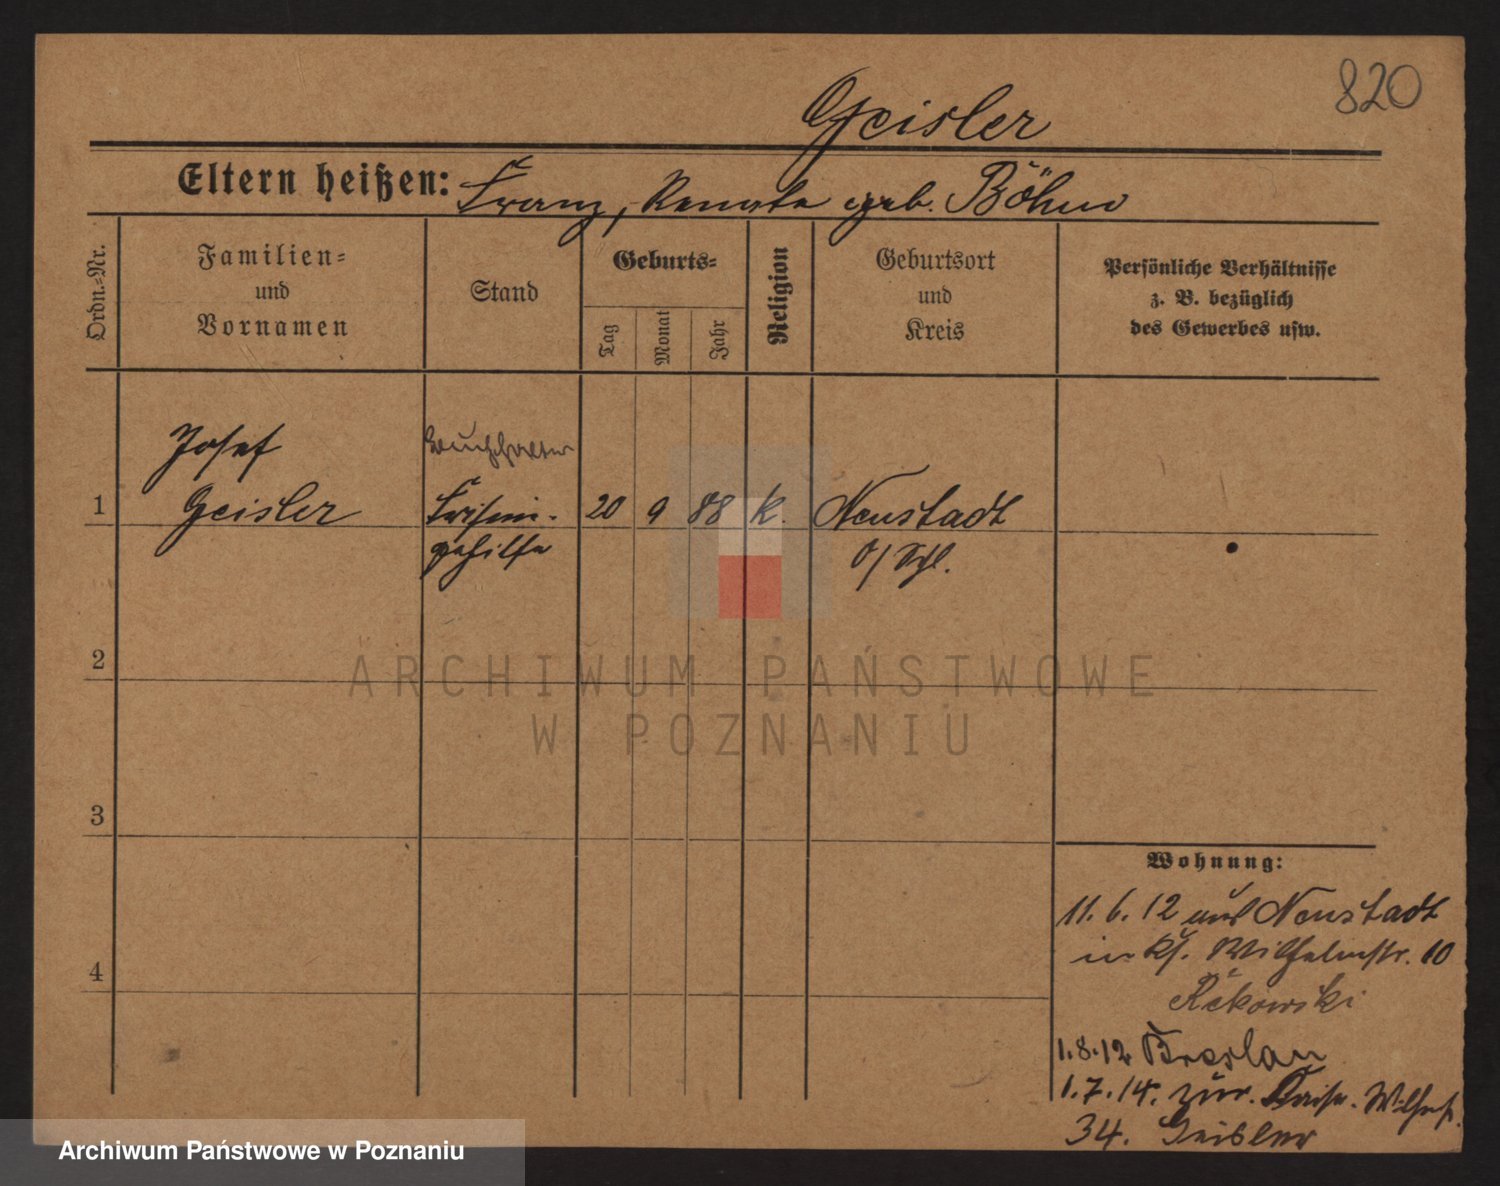 820
Geisler
Eltern heißen: Franz, Renate geb. Böhm
Ordn.-Nr.
Familien-
und
Vornamen
Stand
Geburts-
Tag
Monat
Jahr
Religion
Geburtsort
und
Kreis
Persönliche Verhältnisse
z. B. bezüglich
des Gewerbes usw.
Josef
Buchhalter
1 Geisler Friseur- 20 9 88 k. Neustadt
gehilfe O/Schl.
2
ARCHIWUM PAŃSTWOWE
W POZNANIU
3
Wohnung:
11. 6. 12 aus Neustadt
in Wilhelmstr. 10
Rekowski
4
1.8.12 Breslau
1.7.14. zur. Kais. Wilhelmstr.
34. Geisler
Archiwum Państwowe w Poznaniu